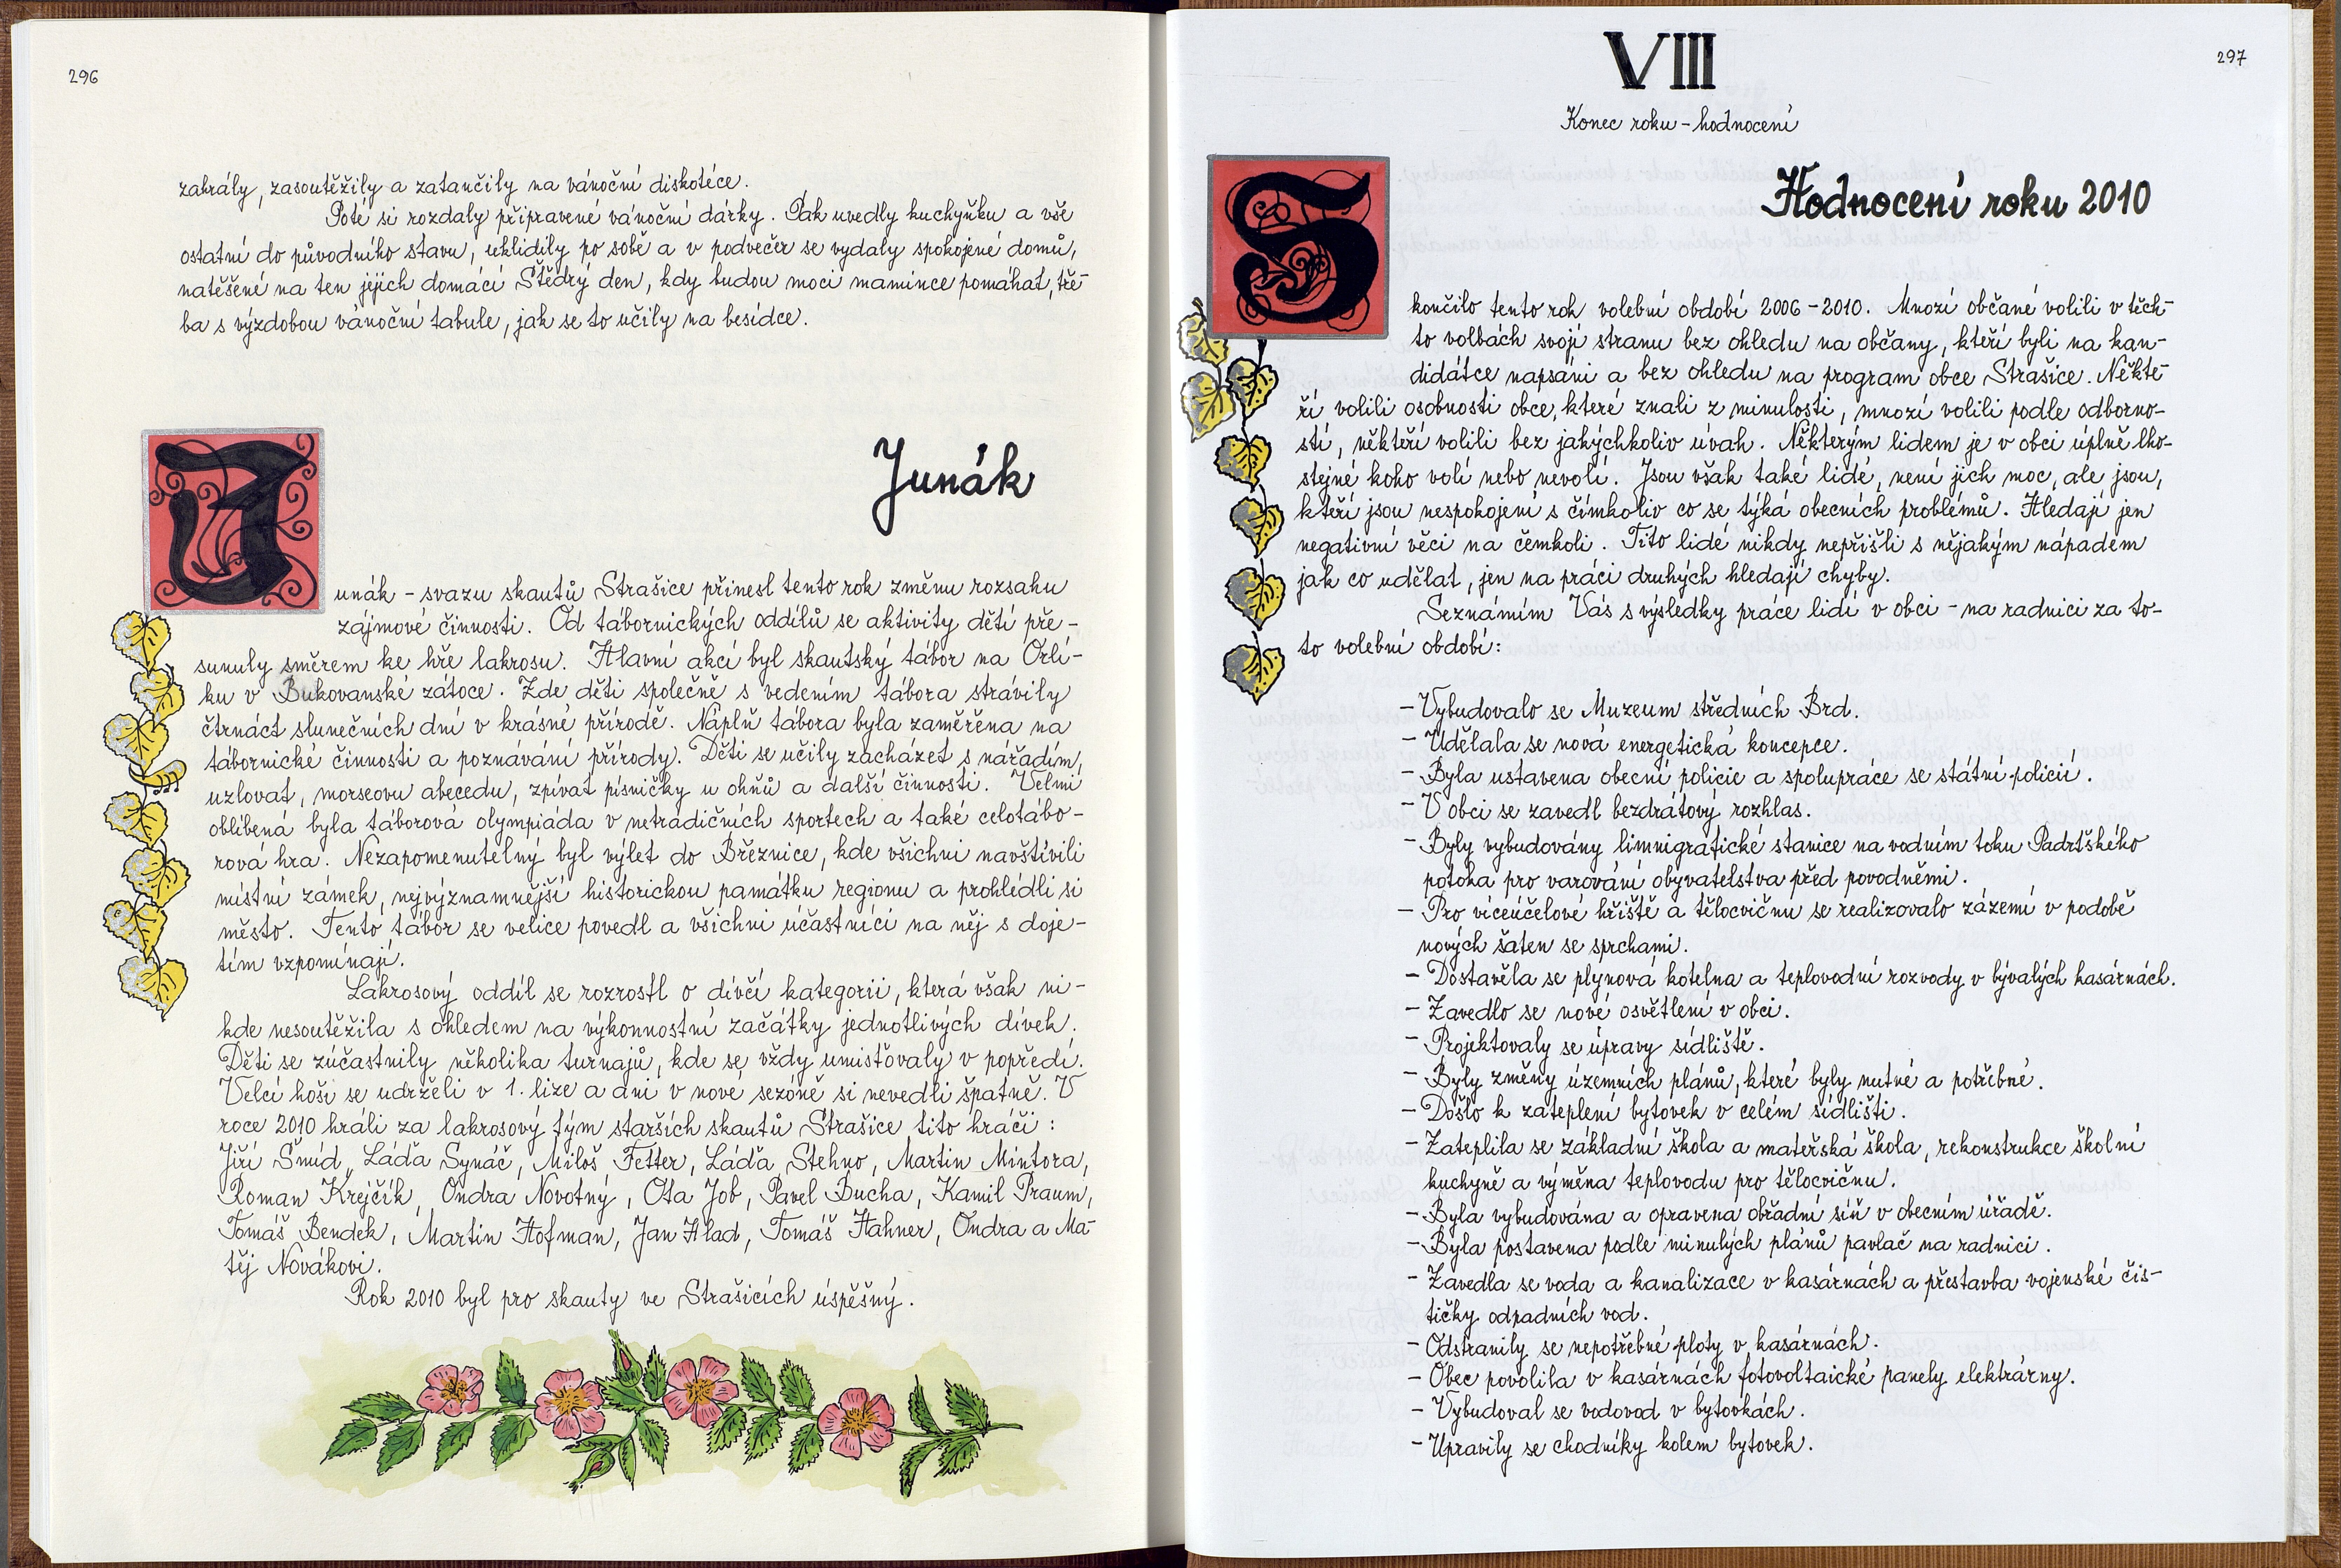 296
zahrály, zasoutěžily a zatančily na vánoční diskotéce.
Poté si rozdaly připravené vánoční dárky. Pak uvedly kuchyňku a vše
ostatní do původního stavu, uklidily po sobě a v podvečer se vydaly spokojené domů,
natěšené na ten jejich domácí Štědrý den, kdy budou moci mamince pomáhat, tře-
ba s výzdobou vánoční tabule, jak se to učily na besídce.
Junák
Junák - svazu skautů Strašice přinesl tento rok změnu rozsahu
zájmové činnosti. Od tábornických oddílů se aktivity dětí pře-
sunuly směrem ke hře lakrosu. Hlavní akcí byl skautský tábor na Orlí-
ku v Bukovanské zátoce. Zde děti společně s vedením tábora strávily
čtrnáct slunečních dní v krásné přírodě. Náplň tábora byla zaměřena na
tábornické činnosti a poznávání přírody. Děti se učily zacházet s nářadím,
uzlovat, morseovu abecedu, zpívat písničky u ohňů a další činnosti. Velmi
oblíbená byla táborová olympiáda v netradičních sportech a také celotábo-
rová hra. Nezapomenutelný byl výlet do Březnice, kde všichni navštívili
místní zámek, nejvýznamnější historickou památku regionu a prohlédli si
město. Tento tábor se velice povedl a všichni účastníci na něj s doje-
tím vzpomínají.
Lakrosový oddíl se rozrostl o dívčí kategorii, která však ni-
kde nesoutěžila s ohledem na výkonnostní začátky jednotlivých dívek.
Děti se zúčastnily několika turnajů, kde se vždy umisťovaly v popředí.
Velcí hoši se udrželi v 1. lize a ani v nové sezóně si nevedli špatně. V
roce 2010 hráli za lakrosový tým starších skautů Strašice tito hráči:
Jiří Šmíd, Láďa Synáč, Miloš Fetter, Láďa Stehno, Martin Mintora,
Roman Krejčík, Ondra Novotný, Ota Job, Pavel Bucha, Kamil Praum,
Tomáš Bendek, Martin Hofman, Jan Hlad, Tomáš Hahner, Ondra a Ma-
těj Novákovi.
Rok 2010 byl pro skauty ve Strašicích úspěšný.
VIII
297
Konec roku - hodnocení
Hodnocení roku 2010
Skončilo tento rok volební období 2006 - 2010. Mnozí občané volili v těch-
to volbách svoji stranu bez ohledu na občany, kteří byli na kan-
didátce napsáni a bez ohledu na program obce Strašice. Někte-
ří volili osobnosti obce, které znali z minulosti, mnozí volili podle odborno-
stí, někteří volili bez jakýchkoliv úvah. Některým lidem je v obci úplně lho-
stejné koho volí nebo nevolí. Jsou však také lidé, není jich moc, ale jsou,
kteří jsou nespokojeni s čímkoliv co se týká obecních problémů. Hledají jen
negativní věci na čemkoli. Tito lidé nikdy nepřišli s nějakým nápadem
jak co udělat, jen na práci druhých hledají chyby.
Seznámím Vás s výsledky práce lidí v obci - na radnici za to-
to volební období:
- Vybudovalo se Muzeum středních Brd.
- Udělala se nová energetická koncepce.
- Byla ustavena obecní policie a spolupráce se státní policií.
- V obci se zavedl bezdrátový rozhlas.
- Byly vybudovány limnigrafické stanice na vodním toku Padrťského
potoka pro varování obyvatelstva před povodněmi.
- Pro víceúčelové hřiště a tělocvičnu se realizovalo zázemí v podobě
nových šaten se sprchami.
- Dostavěla se plynová kotelna a teplovodní rozvody v bývalých kasárnách.
- Zavedlo se nové osvětlení v obci.
- Projektovaly se úpravy sídliště.
- Byly změny územních plánů, které byly nutné a potřebné.
- Došlo k zateplení bytovek v celém sídlišti.
- Zateplila se základní škola a mateřská škola, rekonstrukce školní
kuchyně a výměna teplovodu pro tělocvičnu.
- Byla vybudována a opravena obřadní síň v obecním úřadě.
- Byla postavena podle minulých plánů pavlač na radnici.
- Zavedla se voda a kanalizace v kasárnách a přestavba vojenské čis-
tičky odpadních vod.
- Odstranily se nepotřebné ploty v kasárnách.
- Obec povolila v kasárnách fotovoltaické panely elektrárny.
- Vybudoval se vodovod v bytovkách.
- Upravily se chodníky kolem bytovek.